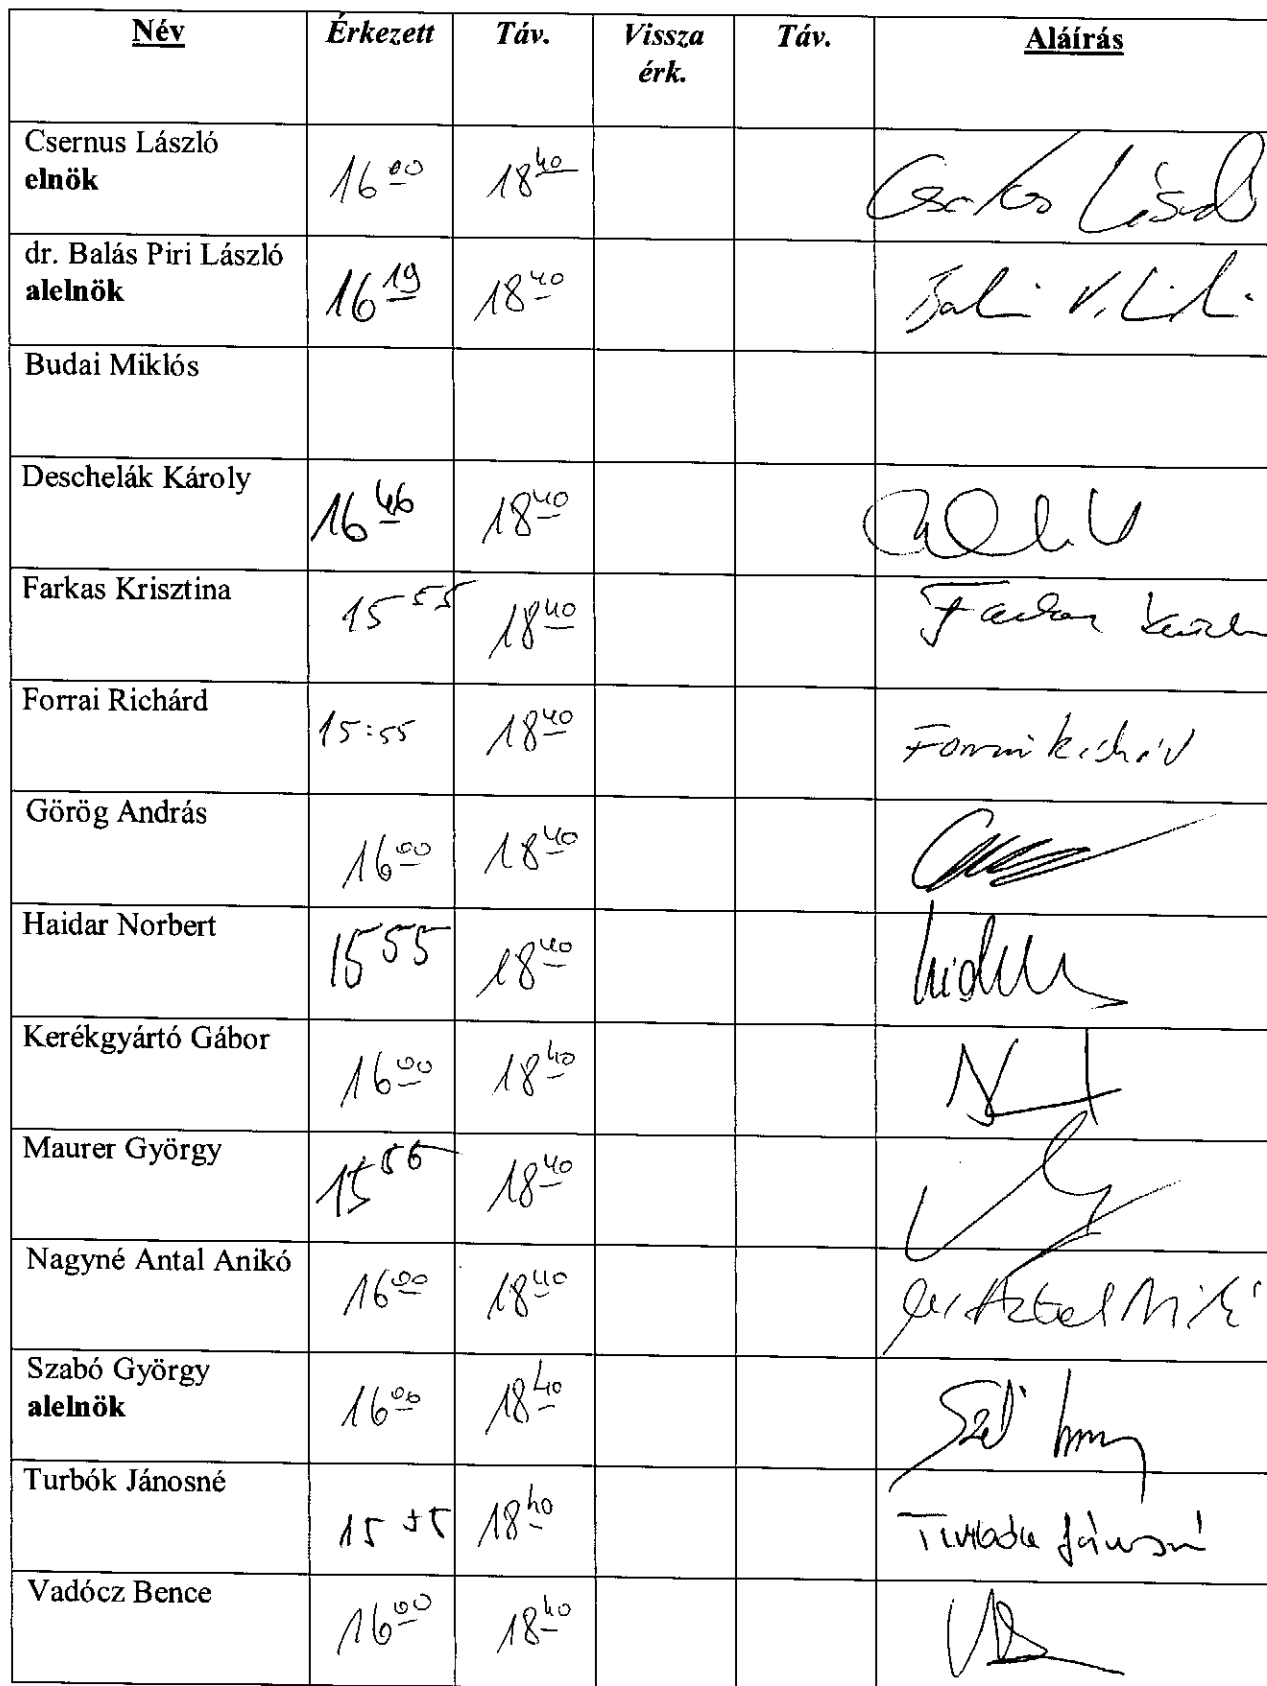 Név Érkezett Táv. Vissza érk. Táv. Aláírás
Csernus László
elnök 16 00 18 40
dr. Balás Piri László
alelnök 16 19 18 40
Budai Miklós
Deschelák Károly 16 46 18 40
Farkas Krisztina 15 55 18 40
Forrai Richárd 15:55 18 40
Görög András 16 00 18 40
Haidar Norbert 15 55 18 40
Kerékgyártó Gábor 16 00 18 40
Maurer György 15 56 18 40
Nagyné Antal Anikó 16 00 18 40
Szabó György
alelnök 16 00 18 40
Turbók Jánosné 15 55 18 40
Vadócz Bence 16 00 18 40